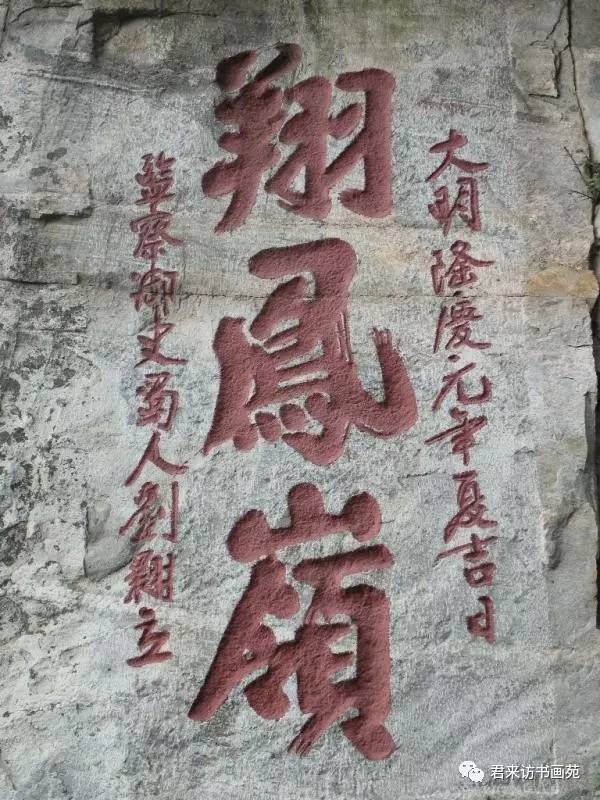 大明隆慶元年夏吉日
翔鳳嶺
監察御史蜀人劉立
君来访书画苑